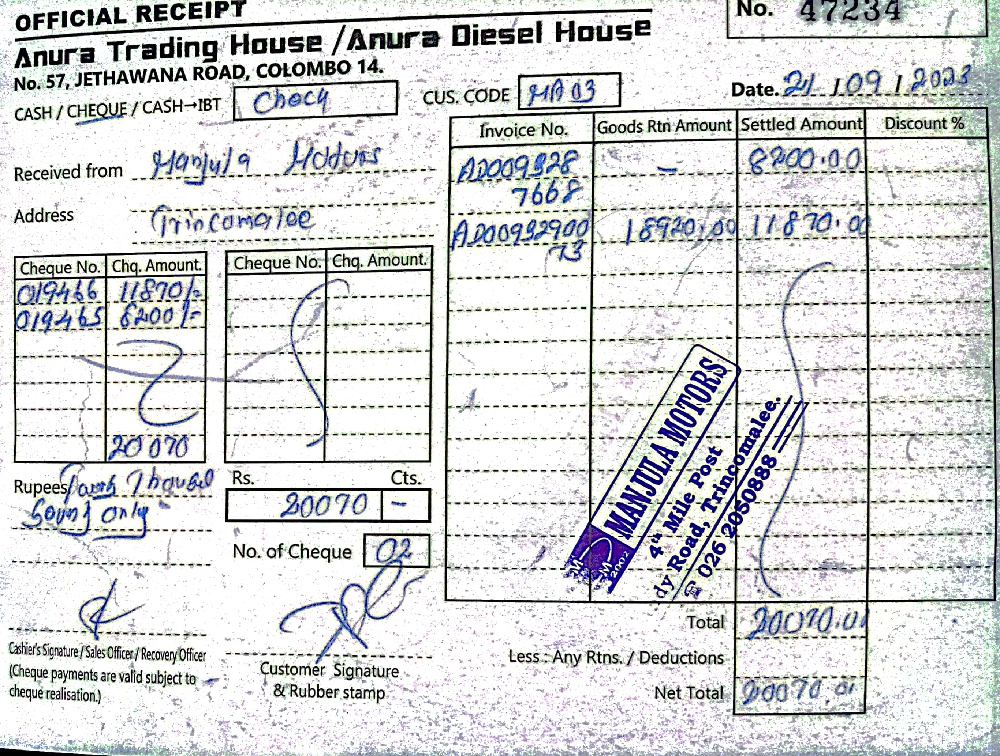 OFFICIAL RECEIPT
No. 47234
Anura Trading House / Anura Diesel House
No. 57, JETHAWANA ROAD, COLOMBO 14.
CASH / CHEQUE / CASH→IBT Check
CUS. CODE MA 03
Date. 21 / 09 / 2023
Received from Manjula Motors
Address Trincomalee
Invoice No. Goods Rtn Amount Settled Amount Discount %
AD009328 – 8200.00
7668
AD00932900 18920.00 11870.00
73
Cheque No. Chq. Amount. Cheque No. Chq. Amount.
019466 11870/-
019465 8200/-
20070
Rupees Thousand
Only
Rs. Cts.
20070 –
No. of Cheque 02
MANJULA MOTORS
4th Mile Post
dy Road, Trincomalee.
☎ 026 2050888
Cashier's Signature / Sales Officer / Recovery Officer
(Cheque payments are valid subject to
cheque realisation.)
Customer Signature
& Rubber stamp
Total 20070.00
Less : Any Rtns. / Deductions
Net Total 20070.00